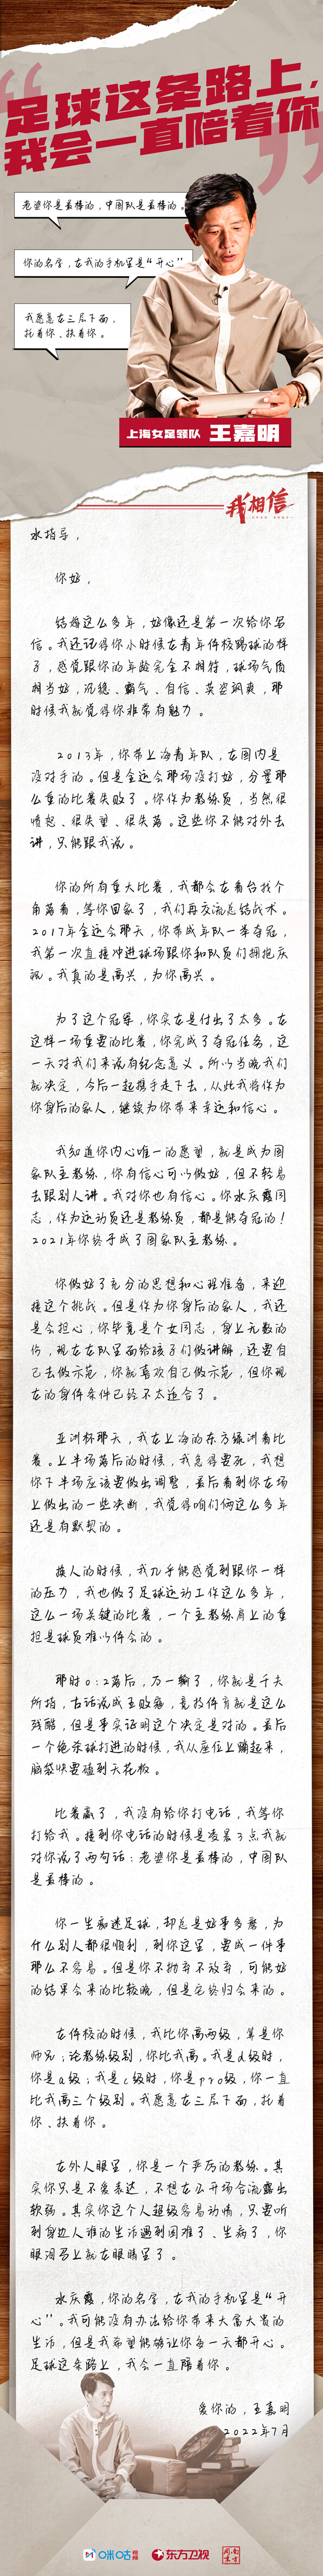 足球这条路上，
我会一直陪着你
老婆你是最棒的，中国队是最棒的。
你的名字，在我的手机里是“开心”
我愿意在三层下面，
托着你、扶着你。
上海女足领队 王嘉明
我相信
水指导，
你好，
结婚这么多年，好像还是第一次给你写
信。我还记得你小时候在青年体校踢球的样
子，感觉跟你的年龄完全不相符，球场气质
相当好，沉稳、霸气、自信、英姿飒爽，那
时候我就觉得你非常有魅力。
2013年，你带上海青年队，在国内是
没对手的。但是全运会那场没打好，分量那
么重的比赛失败了。你作为教练员，当然很
愤怒、很失望、很失落。这些你不能对外去
讲，只能跟我说。
你的所有重大比赛，我都会在看台找个
角落看，等你回家了，我们再交流总结战术。
2017年全运会那天，你带成年队一举夺冠，
我第一次直接冲进球场跟你和队员们拥抱庆
祝。我真的是高兴，为你高兴。
为了这个冠军，你实在是付出了太多。在
这样一场重要的比赛，你完成了夺冠任务，这
一天对我们来说有纪念意义。所以当晚我们
就决定，今后一起携手走下去，从此我将作为
你身后的家人，继续为你带来幸运和信心。
我知道你内心唯一的愿望，就是成为国
家队主教练，你有信心可以做好，但不轻易
去跟别人讲。我对你也有信心。你水庆霞同
志，作为运动员还是教练员，都是能夺冠的！
2021年你终于成了国家队主教练。
你做好了充分的思想和心理准备，来迎
接这个挑战。但是作为你身后的家人，我还
是会担心，你毕竟是个女同志，身上无数的
伤，现在在队里面给孩子们做讲解，还要自
己去做示范，你就喜欢自己做示范，但你现
在的身体条件已经不太适合了。
亚洲杯那天，我在上海的东方绿洲看比
赛。上半场落后的时候，我急得要死，我想
你下半场应该要做出调整，最后看到你在场
上做出的一些决断，我觉得咱们俩这么多年
还是有默契的。
换人的时候，我几乎能感觉到跟你一样
的压力，我也做了足球运动工作这么多年，
这么一场关键的比赛，一个主教练肩上的重
担是球员难以体会的。
那时0:2落后，万一输了，你就是千夫
所指，古话说成王败寇，竞技体育就是这么
残酷，但是事实证明这个决定是对的。最后
一个绝杀球打进的时候，我从座位上蹦起来，
脑袋快要碰到天花板。
比赛赢了，我没有给你打电话，我等你
打给我。接到你电话的时候是凌晨3点我就
对你说了两句话：老婆你是最棒的，中国队
是最棒的。
你一生痴迷足球，却总是好事多磨，为
什么别人都很顺利，到你这里，要成一件事
那么不容易。但是你不抛弃不放弃，可能好
的结果会来的比较晚，但是它终归会来的。
在体校的时候，我比你高两级，算是你
师兄；论教练级别，你比我高。我是d级时，
你是a级；我是c级时，你是pro级，你一直
比我高三个级别。我愿意在三层下面，托着
你、扶着你。
在外人眼里，你是一个严厉的教练。其
实你只是不爱表达，不想在公开场合流露出
软弱。其实你这个人超级容易动情，只要听
到身边人谁的生活遇到困难了、生病了，你
眼泪马上就在眼睛里了。
水庆霞，你的名字，在我的手机里是“开
心”。我可能没有办法给你带来大富大贵的
生活，但是我希望能够让你每一天都开心。
足球这条路上，我会一直陪着你。
爱你的，王嘉明
2022年7月
咪咕视频 东方卫视 南方周末